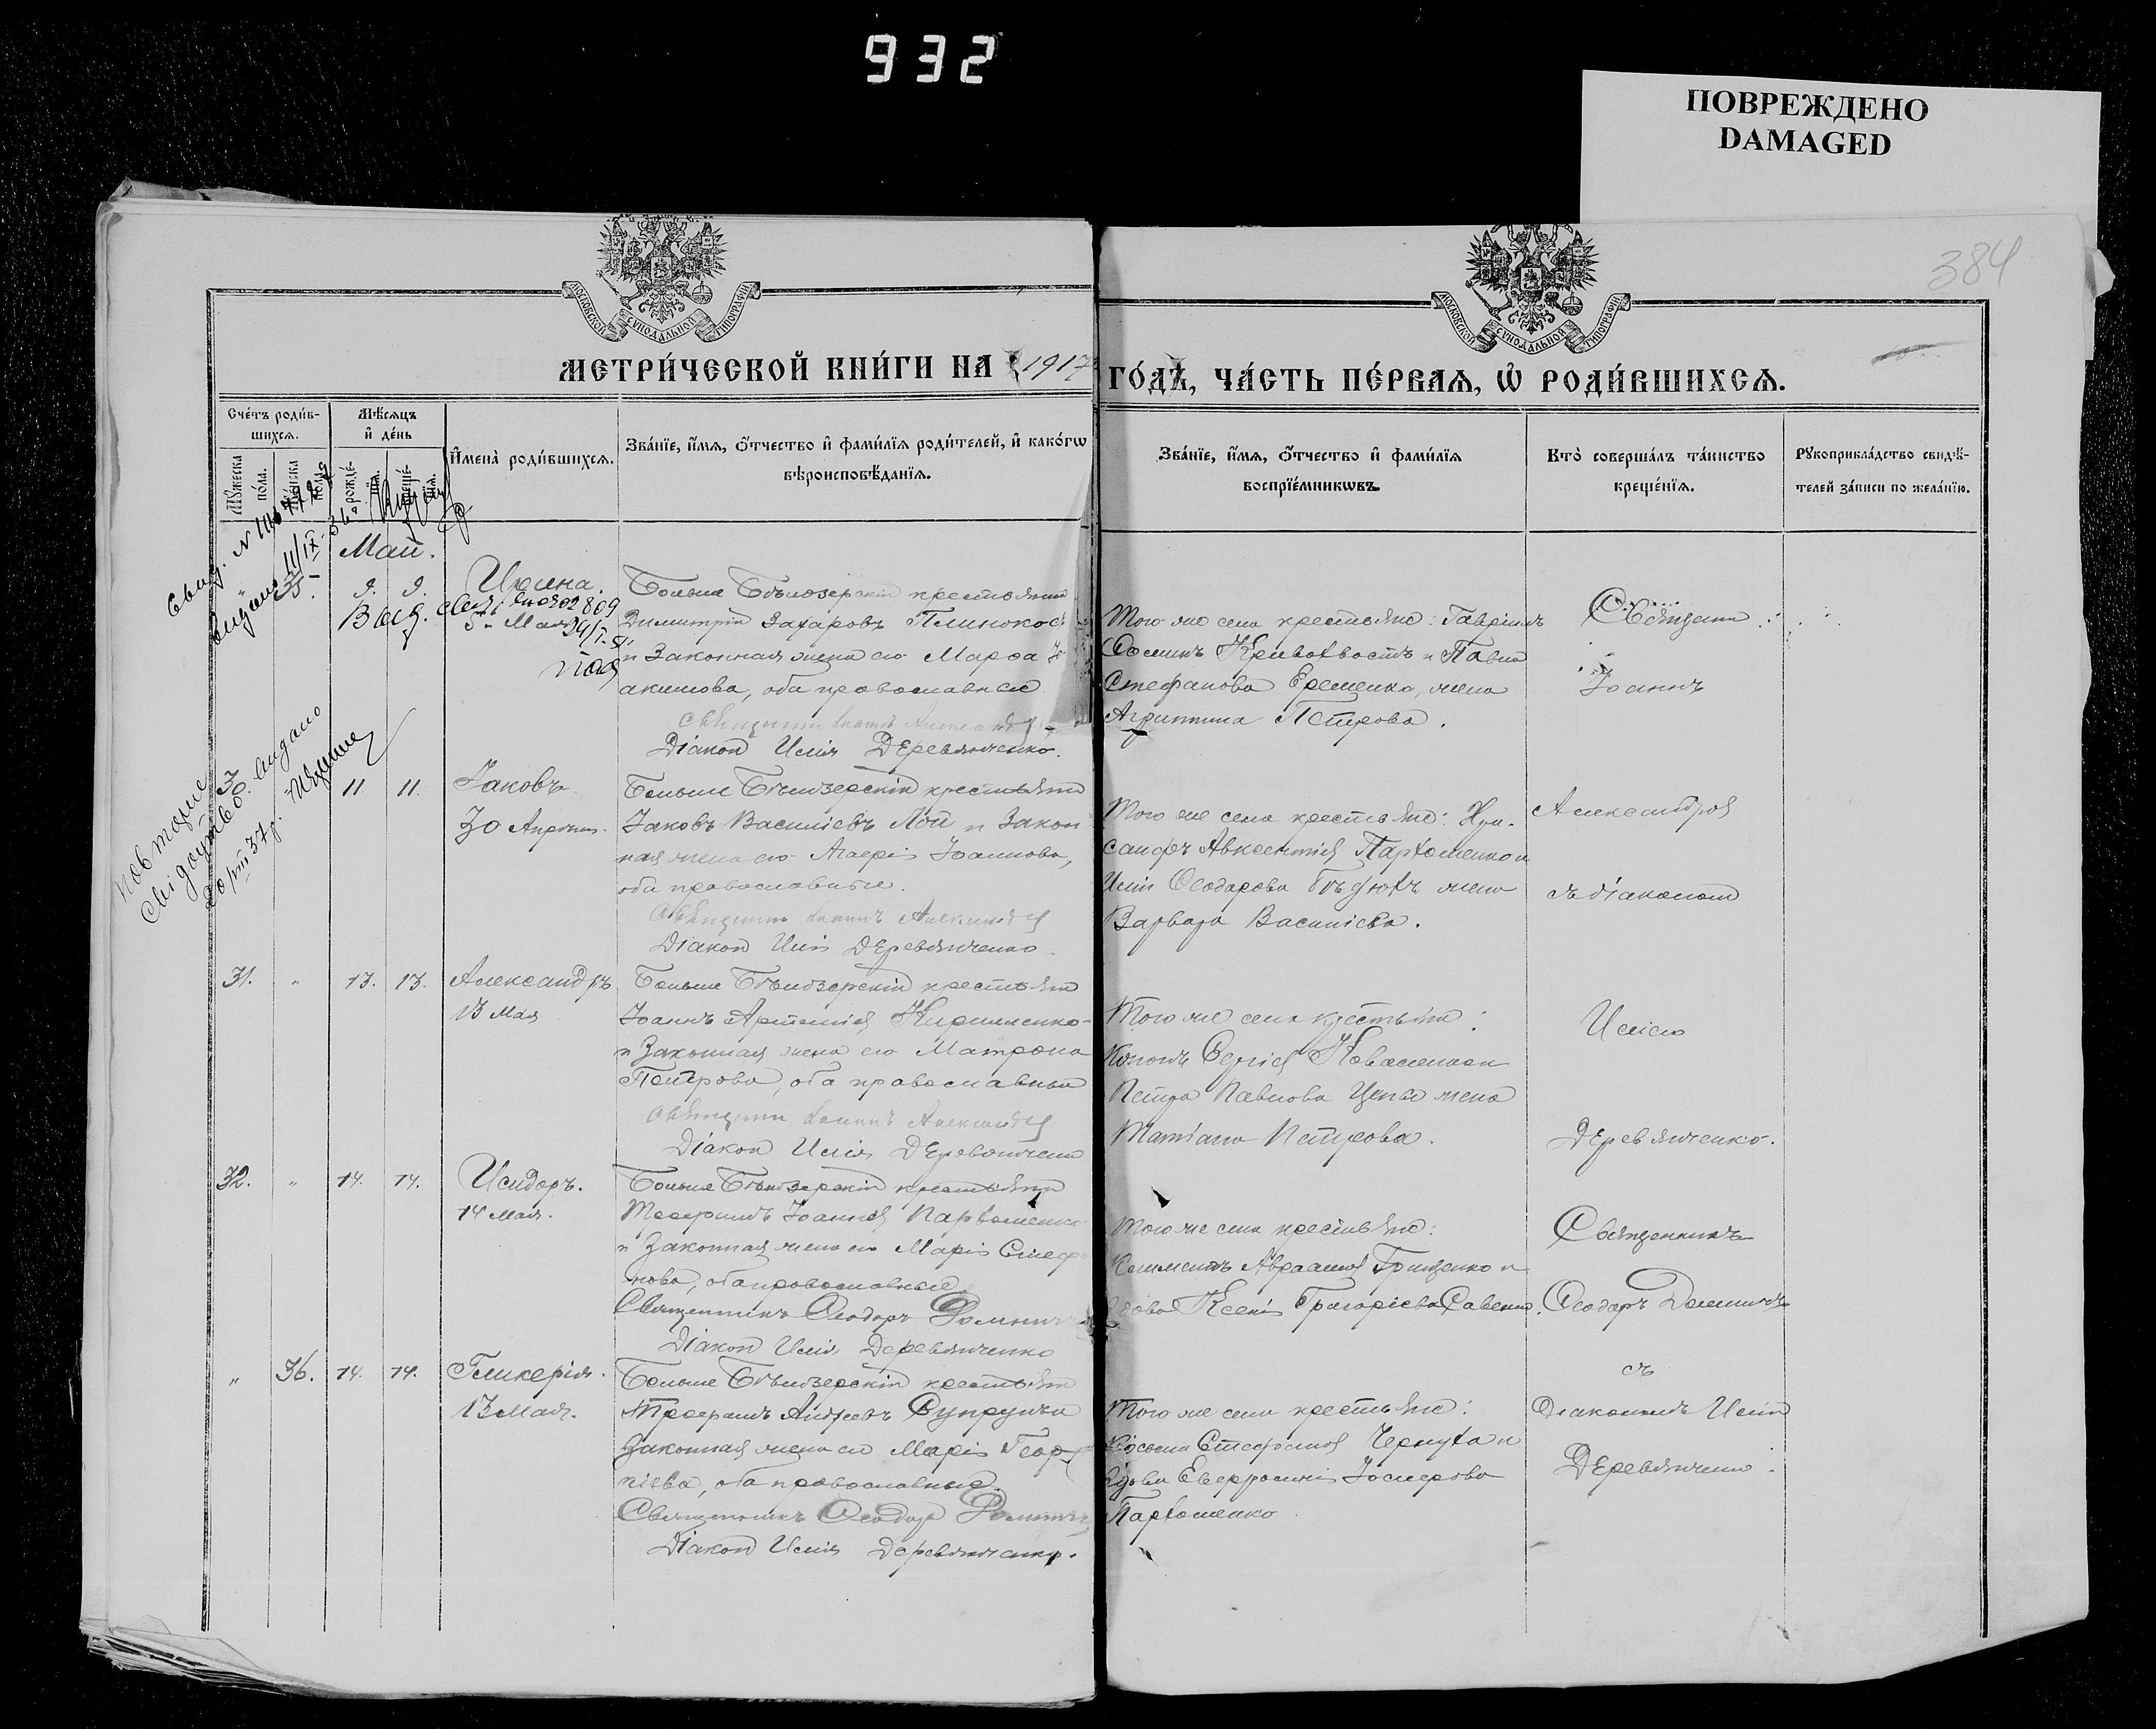 932
ПОВРЕЖДЕНО
DAMAGED
384
МОСКОВСКОЙ СУНОДАЛЬНОЙ ТИПОГРАФІИ
МОСКОВСКОЙ СУНОДАЛЬНОЙ ТИПОГРАФІИ
МЕТРИ́ЧЕСКОЙ КНИ́ГИ НА 1917 ГО́ДЪ, ЧА́СТЬ ПЕ́РВАЯ, Ѡ҆ РОДИ́ВШИХСЯ.
Сче́тъ роди́в-
шихся.
Мѣ́сяцъ
и҆ де́нь
И҆мена̀ роди́вшихся.
Зва́нїе, и҆́мя, ѻ҆́тчество и҆ фами́лїя роди́телей, и҆ како́гѡ
вѣроисповѣ́данїя.
Зва́нїе, и҆́мя, ѻ҆́тчество и҆ фами́лїя
воспрїе́мникѡвъ.
Кто̀ соверша́лъ та́инство
креще́нїя.
Рꙋкоприкла́дство свидѣ́-
телей за́писи по жела́нїю.
Мꙋ́жеска
по́ла.
Же́нска
по́ла
рожде́-
нїя.
креще́-
нїя.
Май.
" 35. 9. 9. Ирина.
5 Мая
Больше Бѣлозерскій крестьянинъ
Димитрій Захаровъ
и законная жена его Марѳа Іо-
акимова, оба православные
Священникъ Іоаннъ Александровъ
Діаконъ Илія Деревянченко.
Того же села крестьяне: Гавріилъ
Ѳоминъ Кривохвостъ и Павла
Стефанова Ерещенко, жена
Агриппина Петрова.
Священникъ
Іоаннъ
30. " 11. 11. Іаковъ
30 Апрѣля.
Больше Бѣлозерскій крестьянинъ
Іаковъ Василіевъ Лой и закон-
ная жена его Агаѳія Іоаннова,
оба православные.
Священникъ Іоаннъ Александровъ
Діаконъ Илія Деревянченко
Того же села крестьяне: Хри-
санѳъ Авксентіевъ Пархоменко и
Иліи Ѳеодорова жена
Варвара Василіева.
Александровъ
съ діакономъ
31. " 13. 13. Александръ
13 Мая
Больше Бѣлозерскій крестьянинъ
Іоаннъ Артеміевъ Кириленко
и законная жена его Матрона
Петрова, оба православные
Священникъ Іоаннъ Александровъ
Діаконъ Илія Деревянченко
Того же села крестьяне:
Кононъ Сергіевъ Коваленко и
Петра Павлова жена
Татіана Петрова.
Иліею
Деревянченко.
32. " 14. 14. Исидоръ.
14 Мая.
Больше Бѣлозерскій крестьянинъ
Іоанновъ Пархоменко
и законная жена его Марія Стефа-
нова, оба православные
Священникъ Ѳеодоръ
Діаконъ Илія Деревянченко
Того же села крестьяне:
Климентъ Авраамовъ Грищенко и
вдова Ксенія Григоріева Савенко.
Священникъ
Ѳеодоръ
съ
" 36. 14. 14. Гликерія.
13 Мая.
Больше Бѣлозерскій крестьянинъ
Трофимъ Андреевъ Супрунъ и
законная жена его Марія Геор-
гіева, оба православные.
Священникъ Ѳеодоръ
Діаконъ Илія Деревянченко.
Того же села крестьяне:
Косьма Стефановъ Чернуха и
вдова Евфросинія Іосифова
Пархоменко
Діакономъ Иліей
Деревянченко.